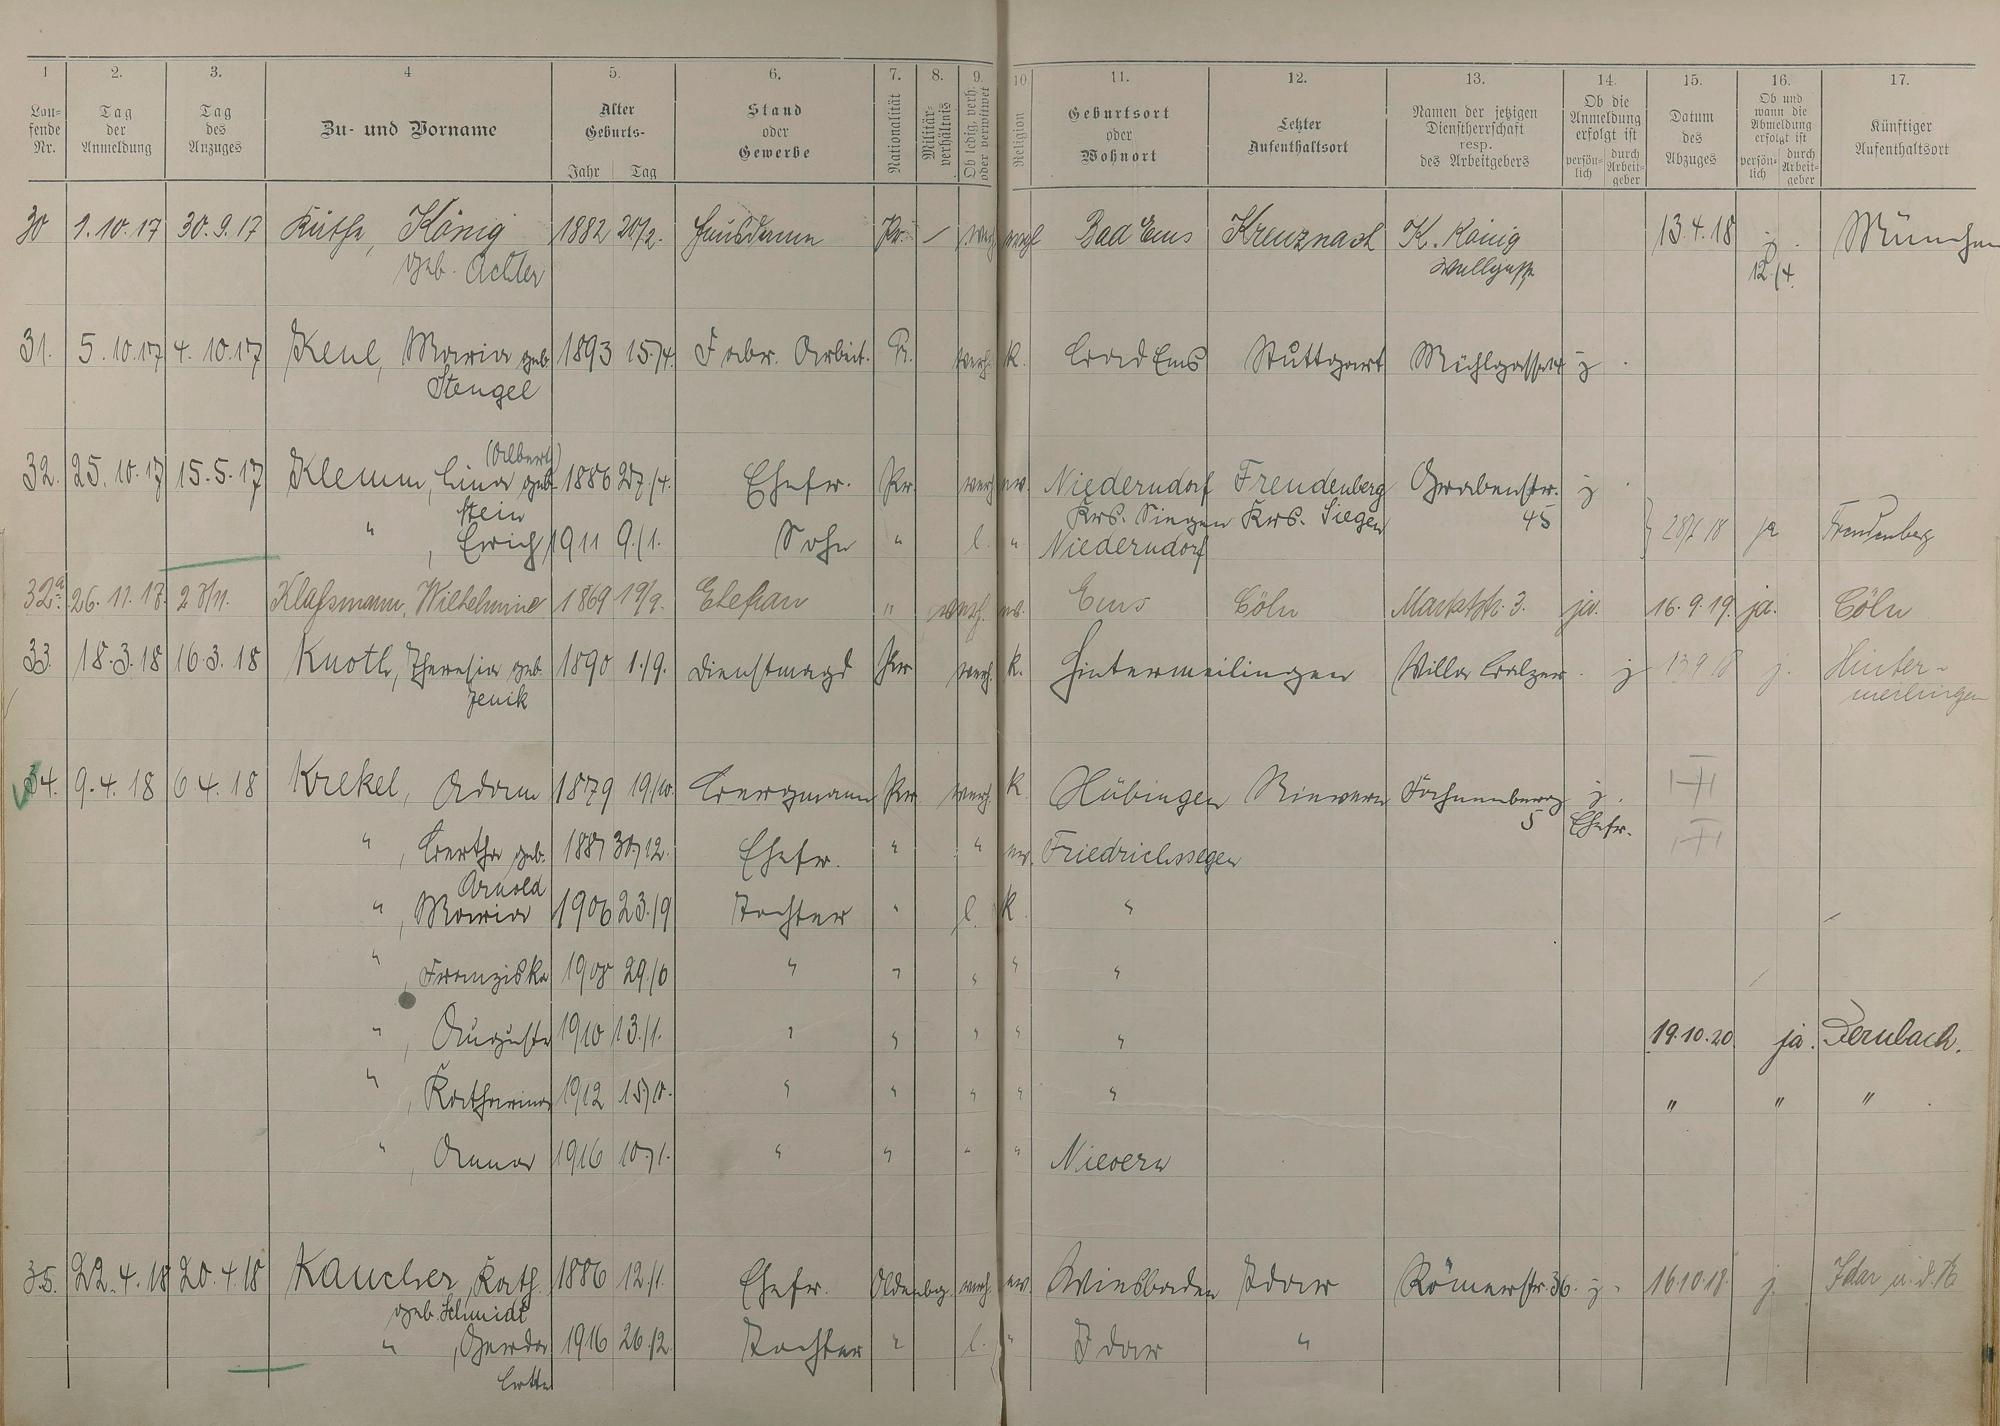 1 2. 3. 4 5. 6. 7. 8. 9. 10 11. 12. 13. 14. 15. 16. 17.
Lau-
fende
Nr.
Tag
der
Anmeldung
Tag
des
Anzuges
Zu- und Vorname
Alter
Geburts-
Jahr Tag
Stand
oder
Gewerbe
Nationalität
Militär-
verhältnis
Ob ledig, verh.
oder verwitwet
Religion
Geburtsort
oder
Wohnort
Letzter
Aufenthaltsort
Namen der jetzigen
Dienstherrschaft
resp.
des Arbeitgebers
Ob die
Anmeldung
erfolgt ist
persön-
lich
durch
Arbeit-
geber
Datum
des
Abzuges
Ob und
wann die
Abmeldung
erfolgt ist
persön-
lich
durch
Arbeit-
geber
Künftiger
Aufenthaltsort
30 1.10.17 30.9.17 Käthe, König 1882 20/2. Hausdame Pr. / Bad Ems Kreuznach K. König 13.4.18 j. München
geb. Achler 12./4.
31. 5.10.17 4.10.17 Keul, Maria geb. 1893 15./4. Fabr. Arbeit. P. verh. k. Bad Ems Stuttgart Mühlgasse 14 j.
Stengel
(Albert)
32. 25.10.17 15.5.17 Klemm, Lina geb. 1886 27./4. Ehefr. Pr. verh. ev. Niederndorf Freudenberg Grabenstr. j.
Stein Krs. Siegen Krs. Siegen 45
" , Erich 1911 9./1. Sohn " l. " Niederndorf } 28/1 18 ja Freudenberg
32a. 26.11.17. 23/11. Klaßmann, Wilhelmine 1869 19/9. Ehefrau " verh. ev. Ems Cöln Marktstr. 3. ja. 16.9.19. ja. Cöln
33. 18.3.18 16.3.18 Knoth, Theresia geb. 1890 1./9. Dienstmagd Pr verh. k. Hintermeilingen Villa Balzer. j 13 9 18 j. Hinter-
Jenik meilingen
34. 9.4.18 6 4.18 Krekel, Adam 1879 19/10. Bergmann Pr verh. k. Hübingen Nievern j.
5 Ehefr.
" , Bertha geb. 1887 30/12. Ehefr. " " ev. Friedrichssegen
Arnold
" , Maria 1906 23./9 Tochter " l. k. "
" , Franziska 1908 29./6 " " " " "
" , Auguste 1910 13./1. " " " " " 19.10.20 ja. Dernbach.
" , Katharina 1912 15/10. " " " " " " " "
" , Anna 1916 10/1. " " " " Nievern
35. 22.4.18 20.4.18 Kaucher, Kath. 1886 12./1. Ehefr. Oldenbg. verh. ev. Wiesbaden Idar Römerstr. 36. j. 16.10.18. j. Idar
geb. Schmidt
" , Gerda 1916 26./2. Tochter " l. " Idar "
Lotte